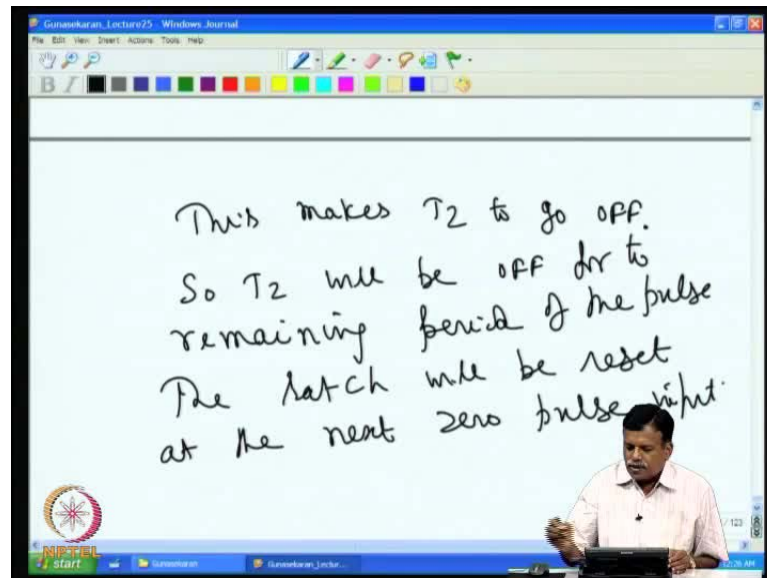 Gunasekaran_Lecture25 - Windows Journal
File Edit View Insert Actions Tools Help
This makes T2 to go OFF.
So T2 will be OFF for to
remaining period of the pulse
The Latch will be reset
at the next zero pulse input.
/ 123
NPTEL
start
Gunasekaran
Gunasekaran_Lectur...
12:26 AM